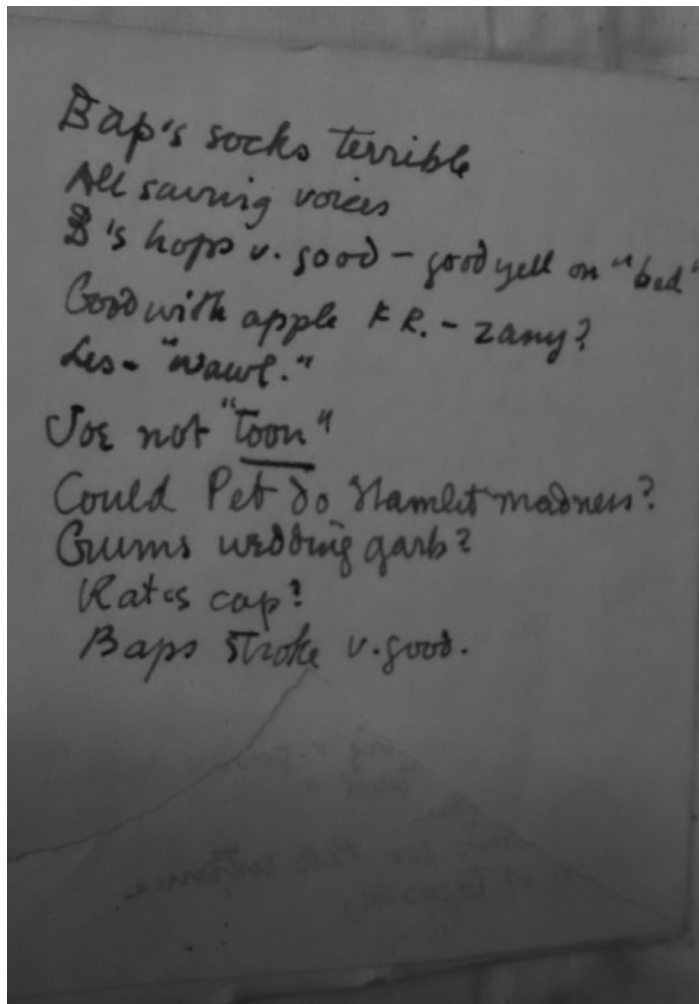 Bap's socks terrible
All saving voices
B's hops v. good - good yell on "bed"
Good with apple K R. - zany?
Les - "Wawl."
Joe not "toon"
Could Pet do Hamlet madness?
Grums wedding garb?
Kates cap?
Baps stroke v. good.